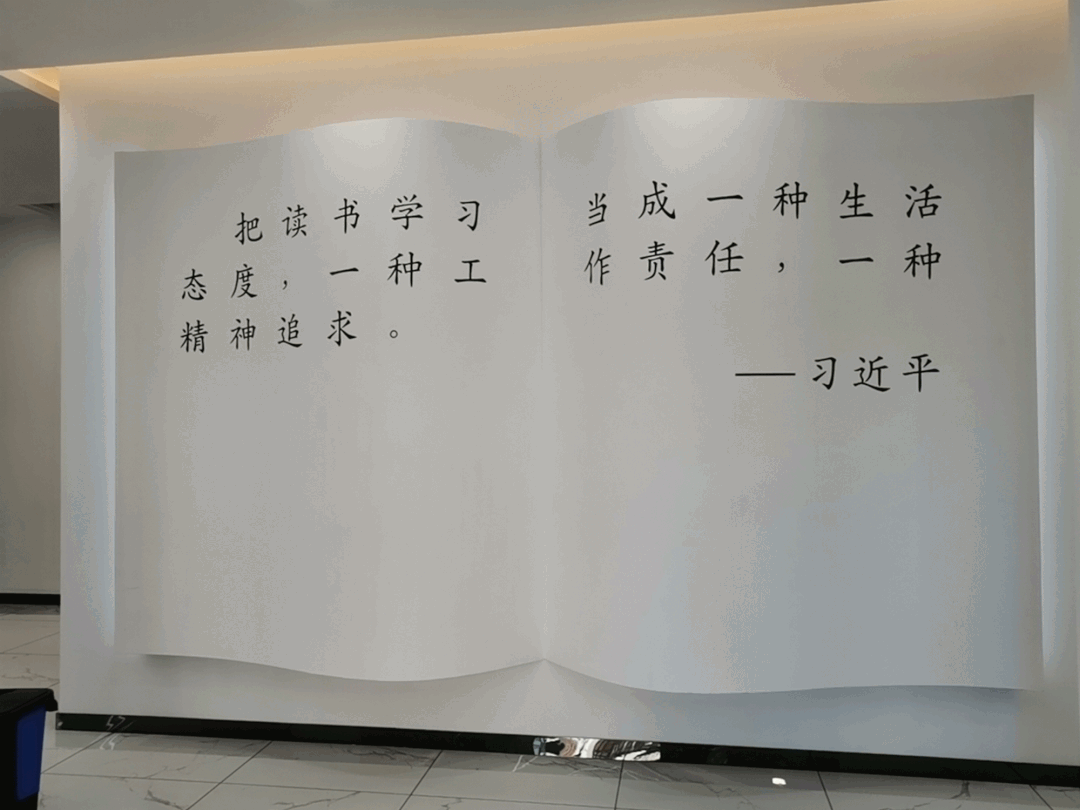 把读书学习当成一种生活
态度，一种工作责任，一种
精神追求。
——习近平